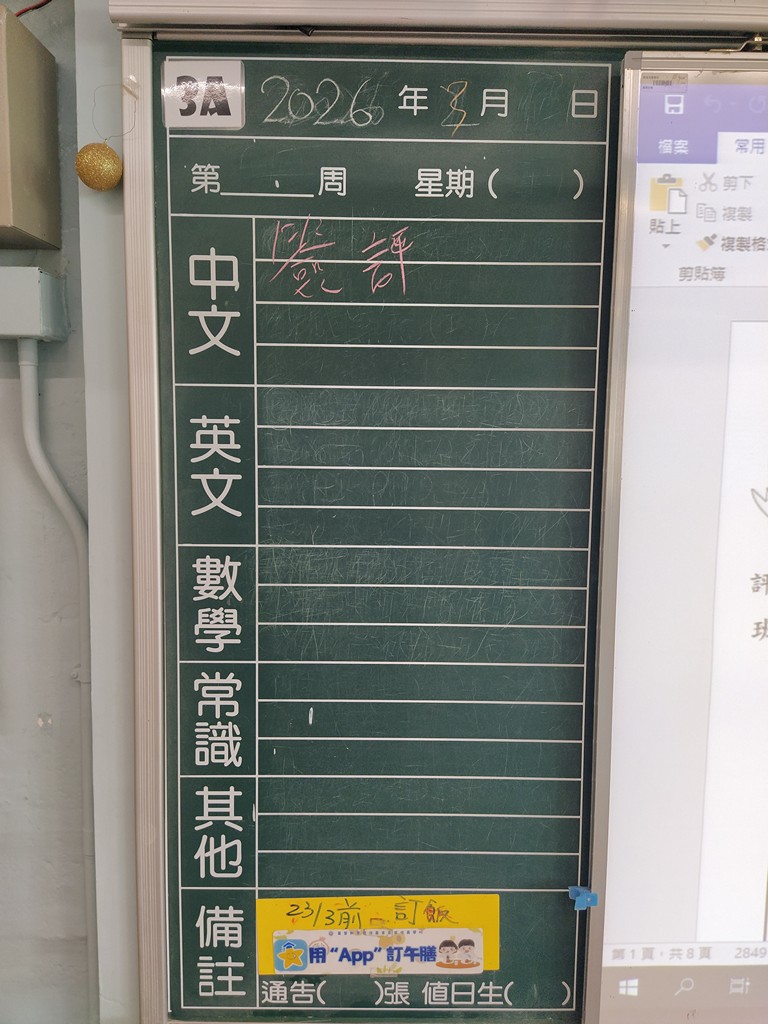 3A 2026 年 3 月 日
第____周 星期( )
中文
評
英文
數學
常識
其他
備註
23/3前 訂飯
用“App”訂午膳
通告( )張 值日生( )
檔案 常用
剪下
複製
貼上
複製格
剪貼簿
評
班
第1頁，共8頁 2849